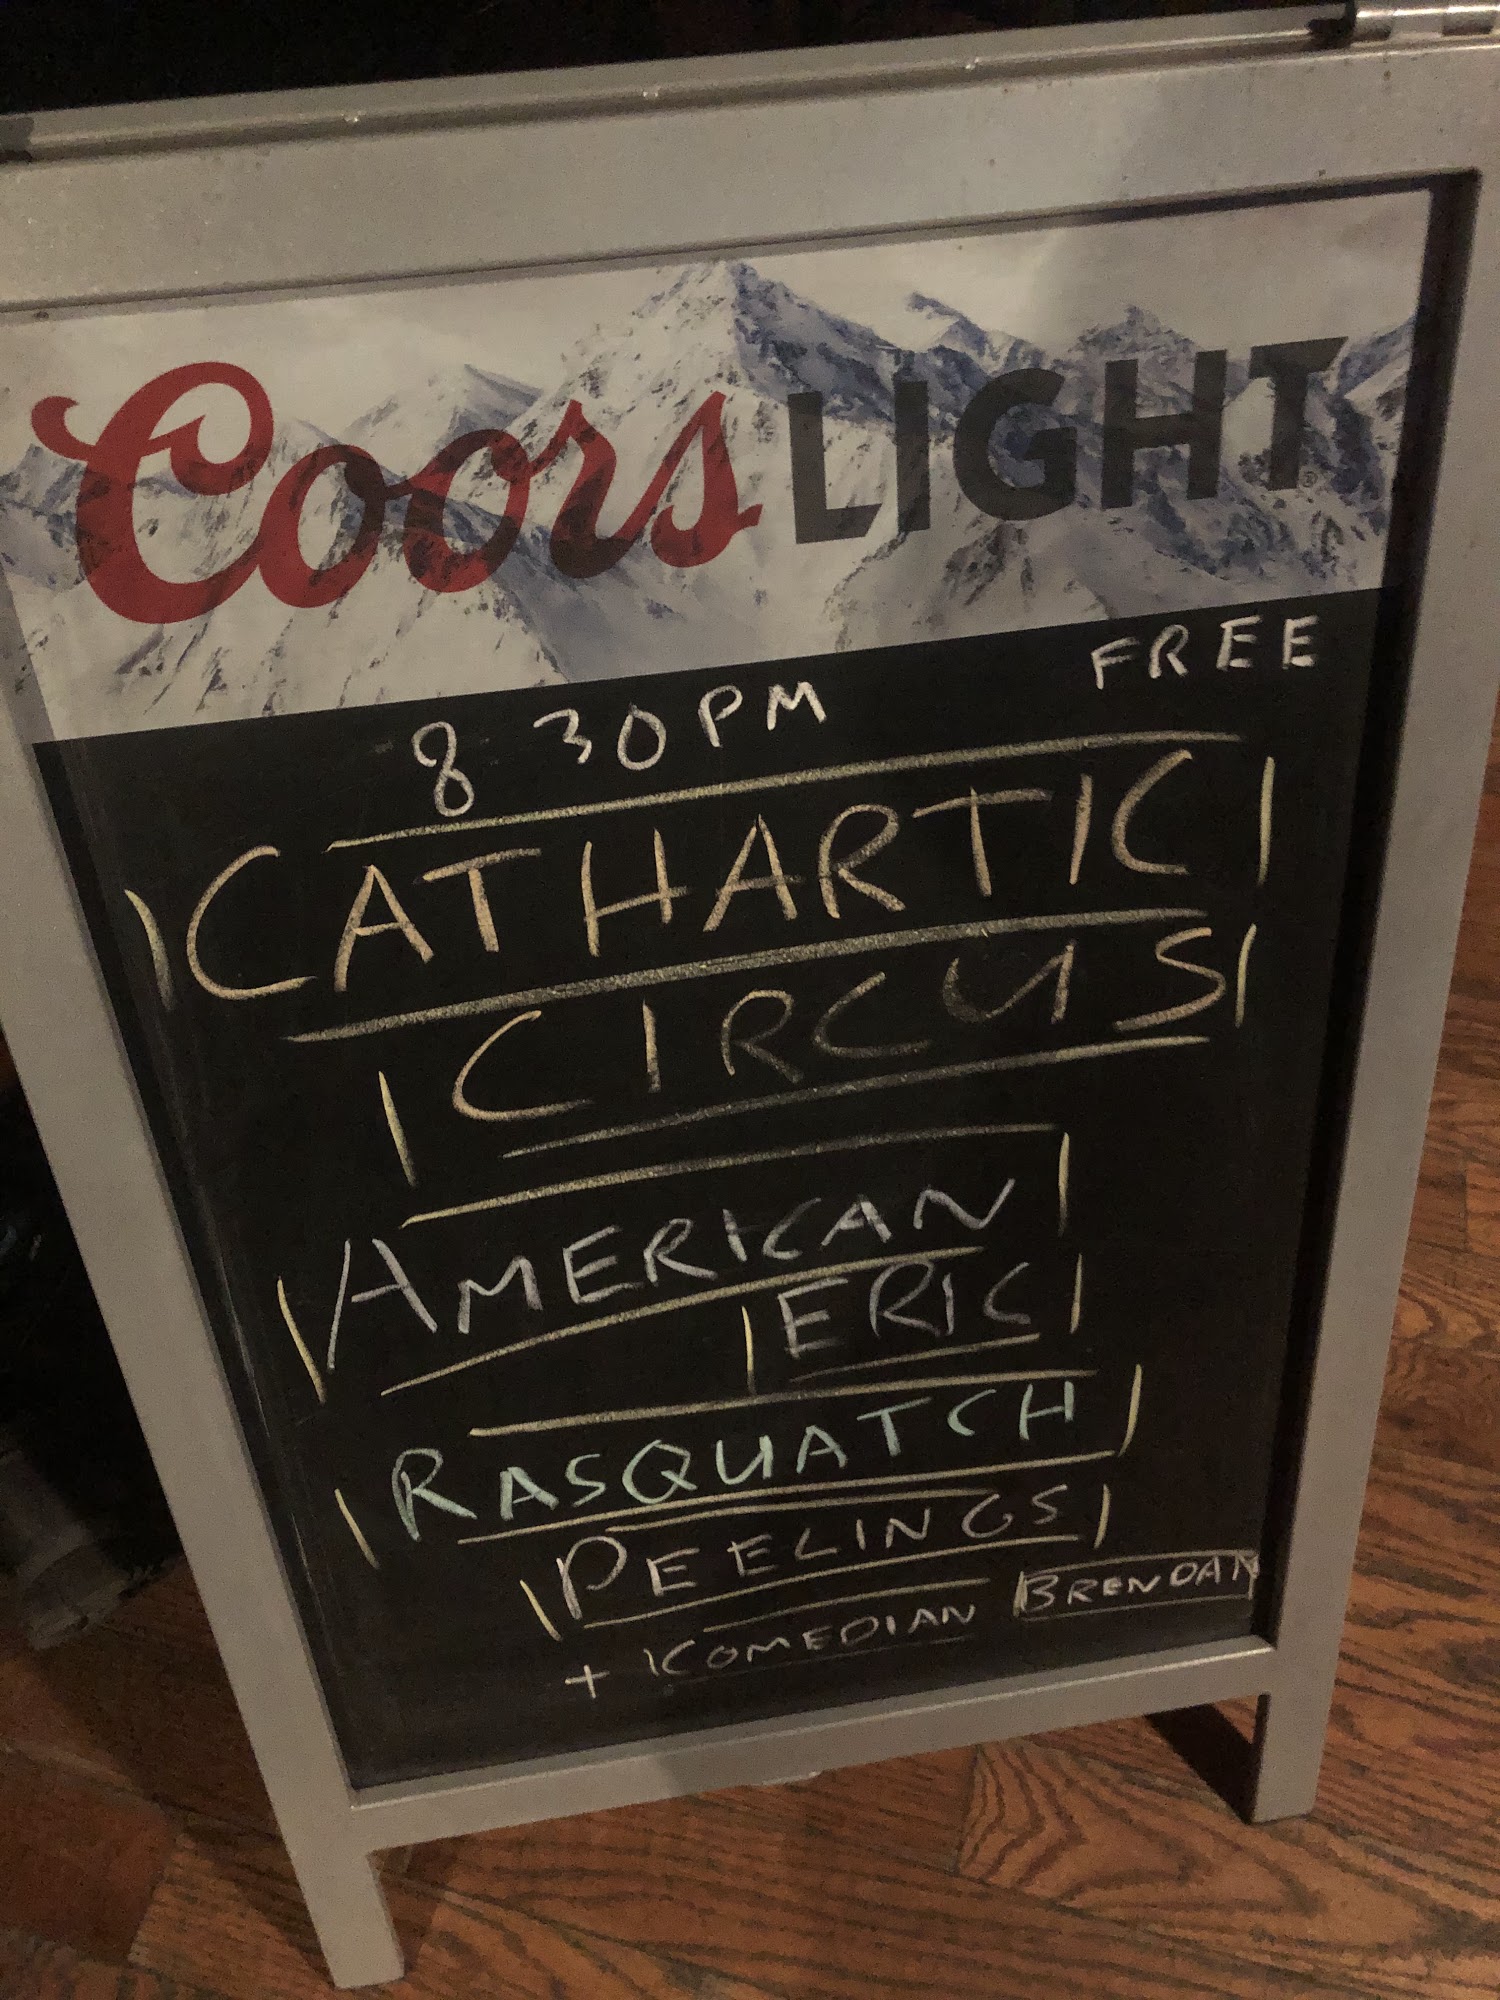 Coors LIGHT
FREE
8 30PM
CATHARTIC
CIRCUS
AMERICAN
ERIC
RASQUATCH
PEELINGS
+ COMEDIAN BRENDAN